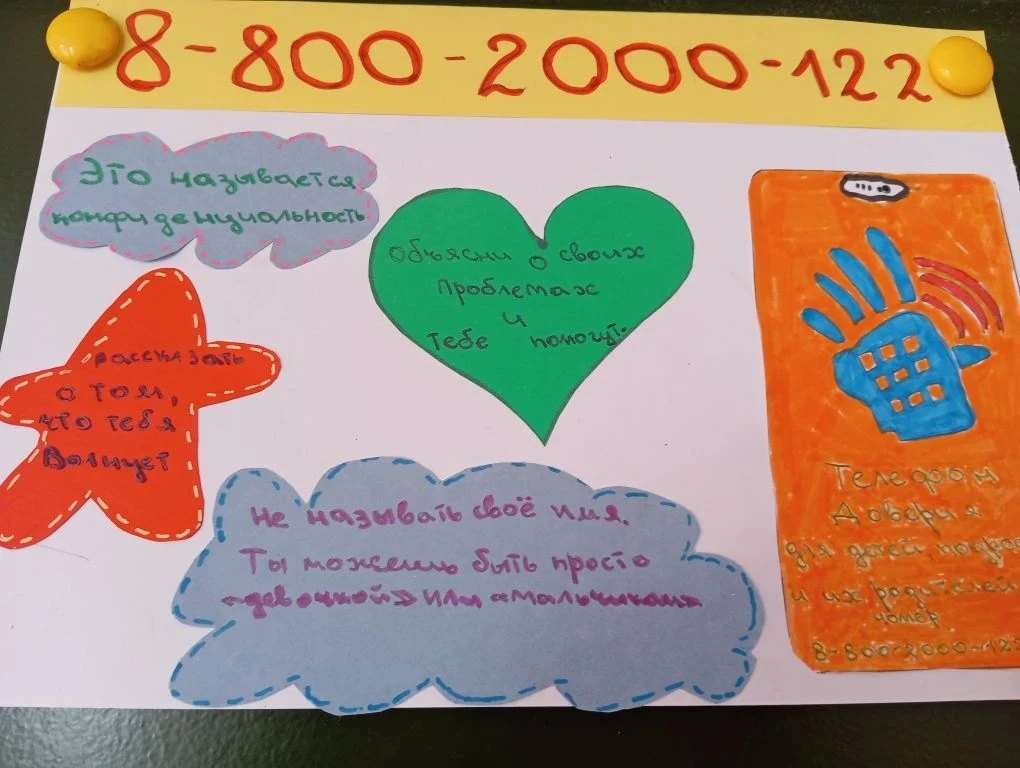 8-800-2000-122
Это называется
конфиденциальность
рассказать
о том,
что тебя
волнует
Объясни о своих
проблемах
и
тебе помогут.
Не называть своё имя.
Ты можешь быть просто
«девочкой» или «мальчиком»
Телефон
Доверия
для детей,
и их родителей
номер
8-800-2000-122